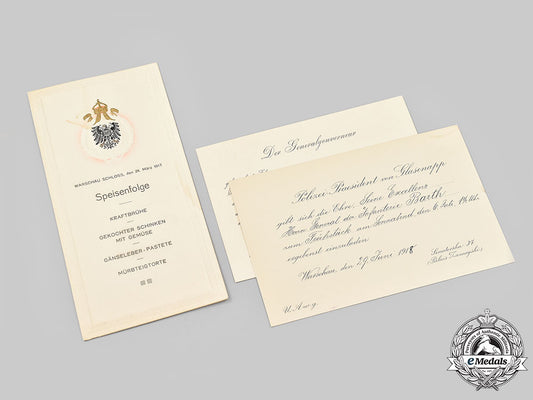 WARSCHAU SCHLOSS, den 24. März 1917
Speisenfolge
KRAFTBRÜHE
GEKOCHTER SCHINKEN
MIT GEMÜSE
GÄNSELEBER-PASTETE
MÜRBETORTE
Der Generalgouverneur
Polizei-Präsident von Glasenapp
gibt sich die Ehre Seine Excellenz
Herrn General der Infanterie Barth
zum Frühstück am Sonnabend den 6. Juli, 1¾ Uhr
ergebenst einzuladen
Warschau, den 29. Juni 1918
Senatorska 38
U. A. w. g.
eMedals